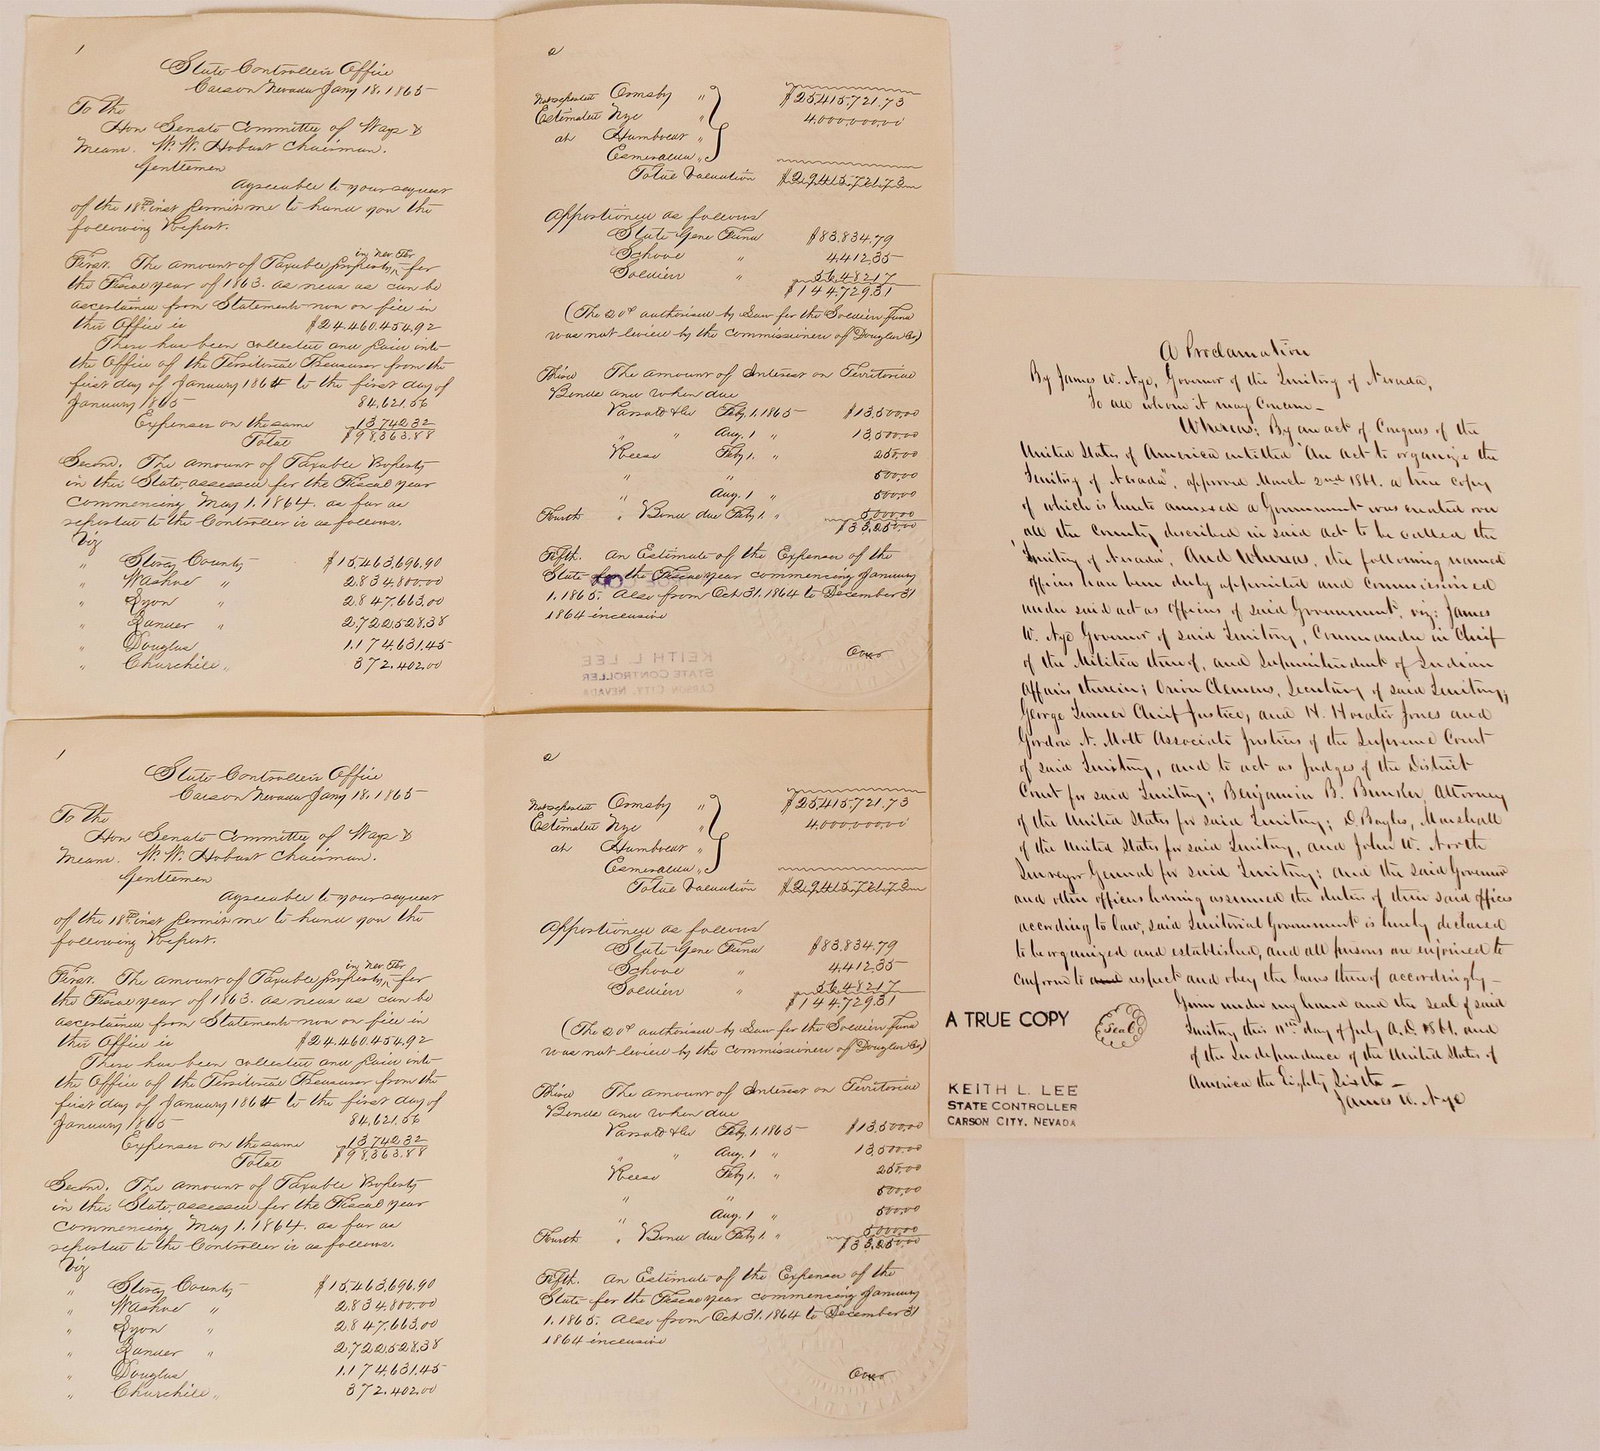 1
State Controllers Office
Carson Nevada Jany 18. 1865
To the
Hon Senate Committee of Ways &
Means. W. W. Hobart Chairman.
Gentlemen
Agreeable to your request
of the 18th inst permit me to hand you the
following Report.
First. The amount of Taxable property in Nev Ter for
the Fiscal year of 1863. as near as can be
ascertained from Statements now on file in
this Office is $24.460.454.92
There has been collected and paid into
the Office of the Territorial Treasurer from the
first day of January 1864 to the first day of
January 1865 84,621.56
Expenses on the same 13,742.32
Total $98,363.88
Second. The amount of Taxable Property
in this State, assessed for the Fiscal year
commencing May 1. 1864. as far as
reported to the Controller is as follows.
Viz
" Storey County $15,463,696.90
" Washoe " 2.834,800.00
" Lyon " 2.847,663.00
" Lander " 2,722,528.38
" Douglas 1,174,631.45
" Churchill " 372.402.00
2
$25,415,721.73
Not reported Ormsby "
Estimated Nye " 4.000,000.00
at Humboldt "
Esmeralda "
Total Valuation $29,415,721.73
Apportioned as follows
State Genl Fund $83,834.79
School " 4,412.35
Soldiers " 56,482.17
$144,729.31
(The 20¢ authorised by Law for the Soldiers Fund
was not levied by the Commissioners of Douglas Co)
Third The amount of Interest on Territorial
Bonds and when due
Feby 1. 1865 $13,500.00
" " Aug. 1 " 13,500.00
Reese Feby 1. " 250.00
" " 500.00
" Aug. 1 " 500.00
Fourth " Bond due Feby 1. " 5,000.00
$33,250.00
Fifth. An Estimate of the Expenses of the
State for the Fiscal year commencing January
1. 1865. Also from Oct 31. 1864 to December 31
1864 inclusive
Over
KEITH L. LEE
STATE CONTROLLER
CARSON CITY, NEVADA
1
State Controllers Office
Carson Nevada Jany 18. 1865
To the
Hon Senate Committee of Ways &
Means. W. W. Hobart Chairman.
Gentlemen
Agreeable to your request
of the 18th inst permit me to hand you the
following Report.
First. The amount of Taxable property in Nev Ter for
the Fiscal year of 1863. as near as can be
ascertained from Statements now on file in
this Office is $24.460.454.92
There has been collected and paid into
the Office of the Territorial Treasurer from the
first day of January 1864 to the first day of
January 1865 84,621.56
Expenses on the same 13,742.32
Total $98,363.88
Second. The amount of Taxable Property
in this State, assessed for the Fiscal year
commencing May 1. 1864. as far as
reported to the Controller is as follows.
Viz
" Storey County $15,463,696.90
" Washoe " 2.834,800.00
" Lyon " 2.847,663.00
" Lander " 2,722,528.38
" Douglas 1,174,631.45
" Churchill " 372.402.00
2
$25,415,721.73
Not reported Ormsby "
Estimated Nye " 4.000,000.00
at Humboldt "
Esmeralda "
Total Valuation $29,415,721.73
Apportioned as follows
State Genl Fund $83,834.79
School " 4,412.35
Soldiers " 56,482.17
$144,729.31
(The 20¢ authorised by Law for the Soldiers Fund
was not levied by the Commissioners of Douglas Co)
Third The amount of Interest on Territorial
Bonds and when due
Feby 1. 1865 $13,500.00
" " Aug. 1 " 13,500.00
Reese Feby 1. " 250.00
" " 500.00
" Aug. 1 " 500.00
Fourth " Bond due Feby 1. " 5,000.00
$33,250.00
Fifth. An Estimate of the Expenses of the
State for the Fiscal year commencing January
1. 1865. Also from Oct 31. 1864 to December 31
1864 inclusive
Over
A Proclamation
By James W. Nye, Governor of the Territory of Nevada,
To all whom it may concern -
Whereas; By an act of Congress of the
United States of America entitled "An act to organize the
Territory of Nevada", approved March 2nd 1861. a true copy
of which is hereto annexed a Government was created over
all the country described in said act to be called the
"Territory of Nevada", And Whereas, the following named
officers have been duly appointed and commissioned
under said act as officers of said Government, viz: James
W. Nye Governor of said Territory, Commander in Chief
of the Militia thereof, and Superintendent of Indian
Affairs therein; Orion Clemens, Secretary of said Territory;
George Turner Chief Justice, and H. Horatio Jones and
Gordon N. Mott Associate Justices of the Supreme Court
of said Territory, and to act as Judges of the District
Court for said Territory; Benjamin B. Bunker, Attorney
of the United States for said Territory; D. Bayles, Marshall
of the United States for said Territory, and John W. North
Surveyor General for said Territory: and the said Governor
and other officers having assumed the duties of their said offices
according to law, said Territorial Government is hereby declared
to be organized and established, and all persons are enjoined to
conform to and respect and obey the laws thereof accordingly -
Given under my hand and the seal of said
Territory this 11th day of July A.D. 1861. and
of the Independence of the United States of
America the Eighty Sixth -
James W. Nye
Seal
A TRUE COPY
KEITH L. LEE
STATE CONTROLLER
CARSON CITY, NEVADA